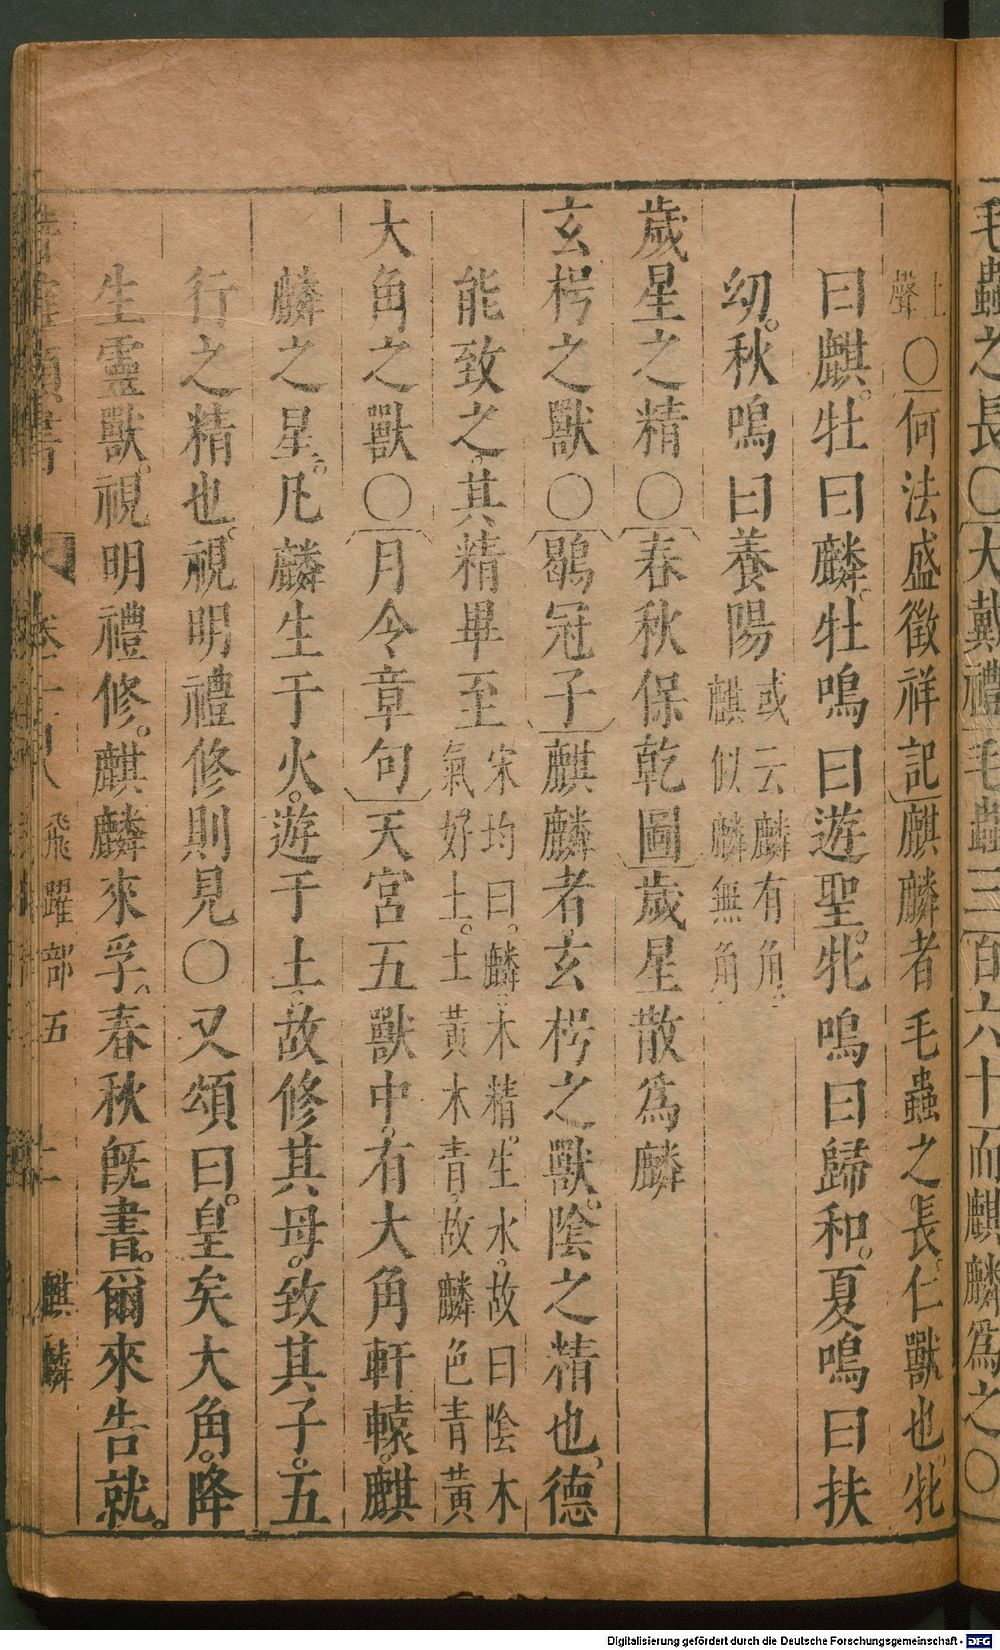 毛蟲之長〇大戴禮毛蟲三百六十而麒麟爲之〇
上聲〇何法盛徵祥記麒麟者毛蟲之長仁獸也牝
曰麒。牡曰麟。牡鳴曰遊聖。牝鳴曰歸和。夏鳴曰扶
幼。秋鳴曰養陽或云麟有角。麒似麟無角
歲星之精〇春秋保乾圖歲星散爲麟
玄枵之獸〇鶡冠子麒麟者。玄枵之獸。陰之精也。德
能致之。其精畢至宋均曰。麟。木精。生水。故曰陰木氣。好土。土黃木青。故麟色青黃
大角之獸〇月令章句天宮五獸中。有大角軒轅。麒
麟之星。凡麟生于火。遊于土。故修其母。致其子。五
行之精也。視明禮修則見〇又頌曰。皇矣大角。降
生靈獸。視明禮修。麒麟來孚。春秋旣書。爾來告就。
卷一百八 飛躍部五 麒麟
Digitalisierung gefördert durch die Deutsche Forschungsgemeinschaft - DFG